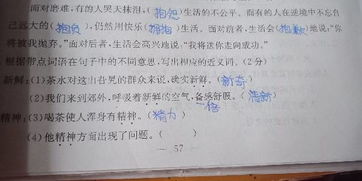 面对磨难,有的人哭天抹泪,(抱怨)生活的不公平。而有的人在逆境中不忘自
己远大的(抱负),仍然用快乐(拥抱)生活。面对前者,生活会(抱歉)地说:"你
将被我抛弃。"面对后者,生活会高兴地说:"我将送你走向成功。"
根据带点词语在句子中的不同意思,写出相应的近义词。(2分)
新鲜:(1)茶水对这出旮旯的群众来说,确实新鲜。(新奇)
(2)我们来到郊外,呼吸着新鲜的空气,备感舒服。(清新)
一倍
精神:(3)喝茶使人浑身有精神。(精力)
(4)他精神方面出现了问题。( )
— 57 —